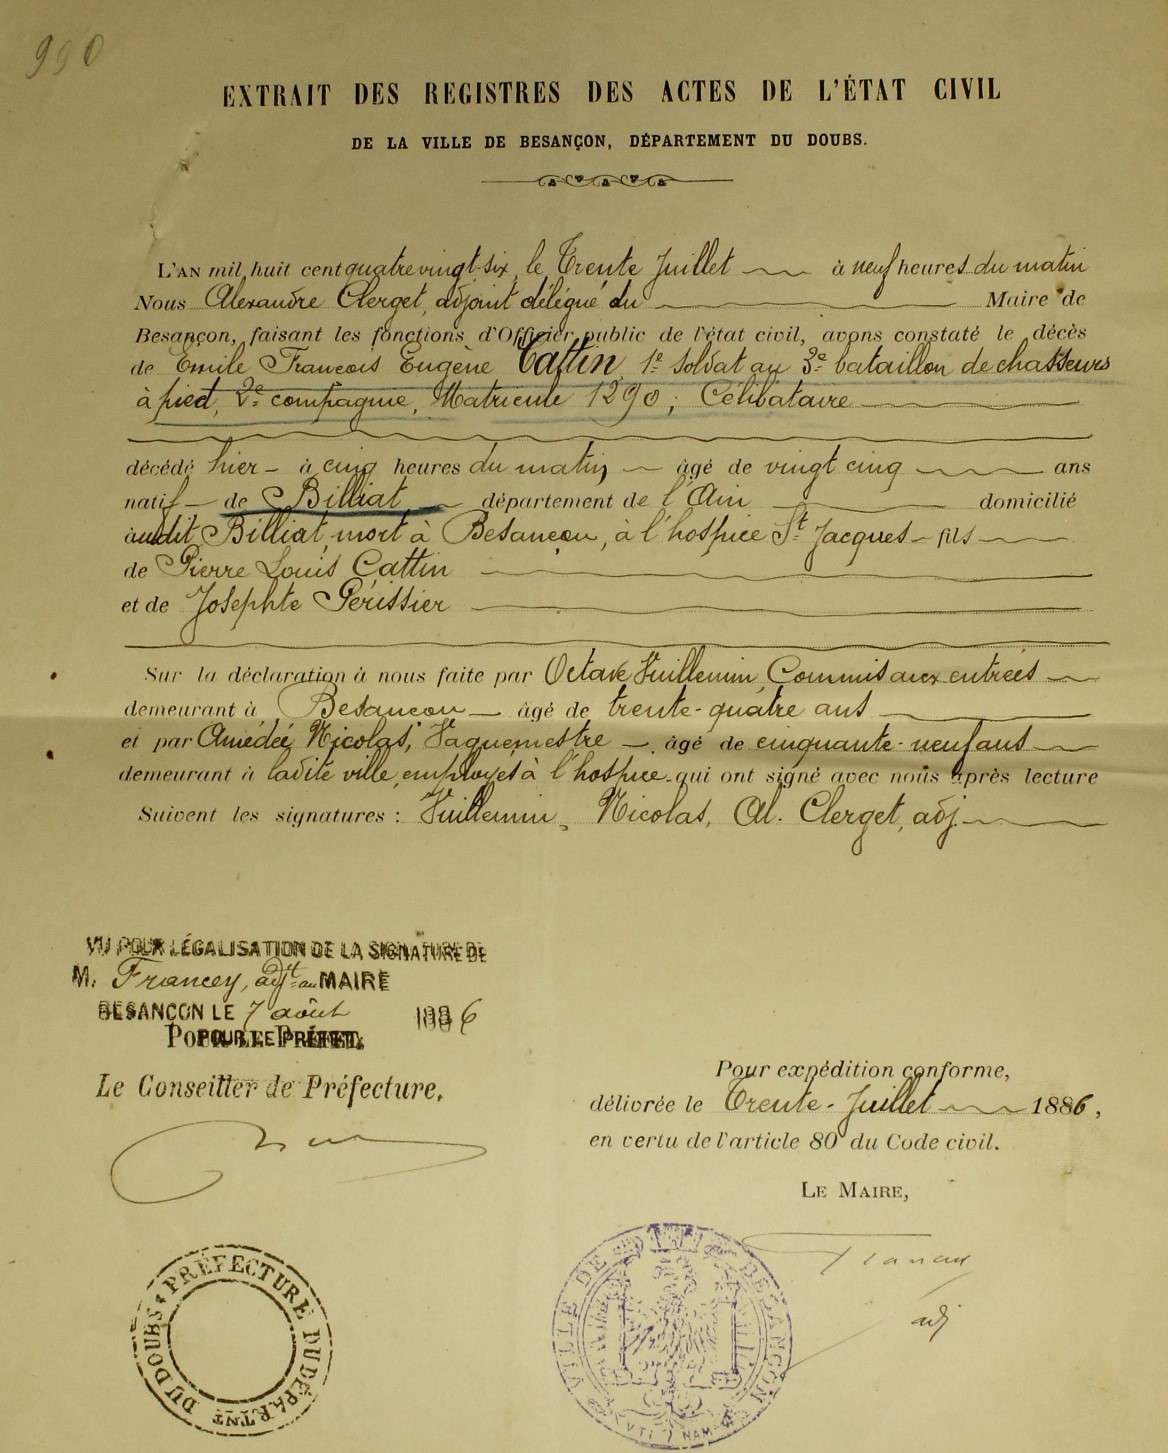 990
EXTRAIT DES REGISTRES DES ACTES DE L'ÉTAT CIVIL
DE LA VILLE DE BESANÇON, DÉPARTEMENT DU DOUBS.
L'AN mil huit cent quatre vingt-six, le Trente Juillet à neuf heures du matin
Nous Alexandre Clerget, adjoint délégué du Maire de
Besançon, faisant les fonctions d'Officier public de l'état civil, avons constaté le décès
de Emile François Eugène Cattin, 1e soldat au 3e bataillon de chasseurs
à pied, 2e compagnie, Matricule 1290; Célibataire
décédé hier à cinq heures du matin, âgé de vingt cinq ans
natif de Billiat département de l'Ain domicilié
audit Billiat, mort à Besançon, à l'hospice St Jacques fils
de Pierre Louis Cattin
et de Josephte Périssier
Sur la déclaration à nous faite par Octave Vuillemin, Commis aux entrées
demeurant à Besançon âgé de trente-quatre ans
et par Amédée Nicolas, Vaguemestre âgé de cinquante-neuf ans
demeurant à ladite ville, employés à l'hospice qui ont signé avec nous après lecture
Suivent les signatures : Vuillemin, Nicolas, Al. Clerget, adj.
VU POUR LÉGALISATION DE LA SIGNATURE DE
M. Francey, adjt au MAIRE
BESANÇON LE 7 août 1886
POUR LE PRÉFET.
Le Conseiller de Préfecture,
Pour expédition conforme,
délivrée le Trente-Juillet 1886,
en vertu de l'article 80 du Code civil.
LE MAIRE,
adj
PRÉFECTURE DU DÉPARTNT DU DOUBS
VILLE DE BESANÇON
UTINAM